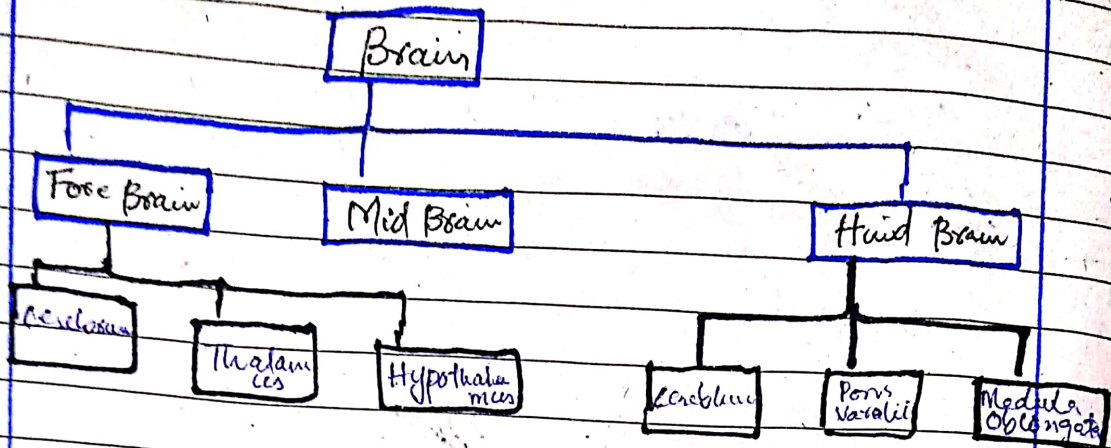 Brain
Fore Brain
Mid Brain
Hind Brain
Cerebrum
Thalam
ces
Hypothala
mces
Cereblum
Pons
Varolii
Medula
Oblongata